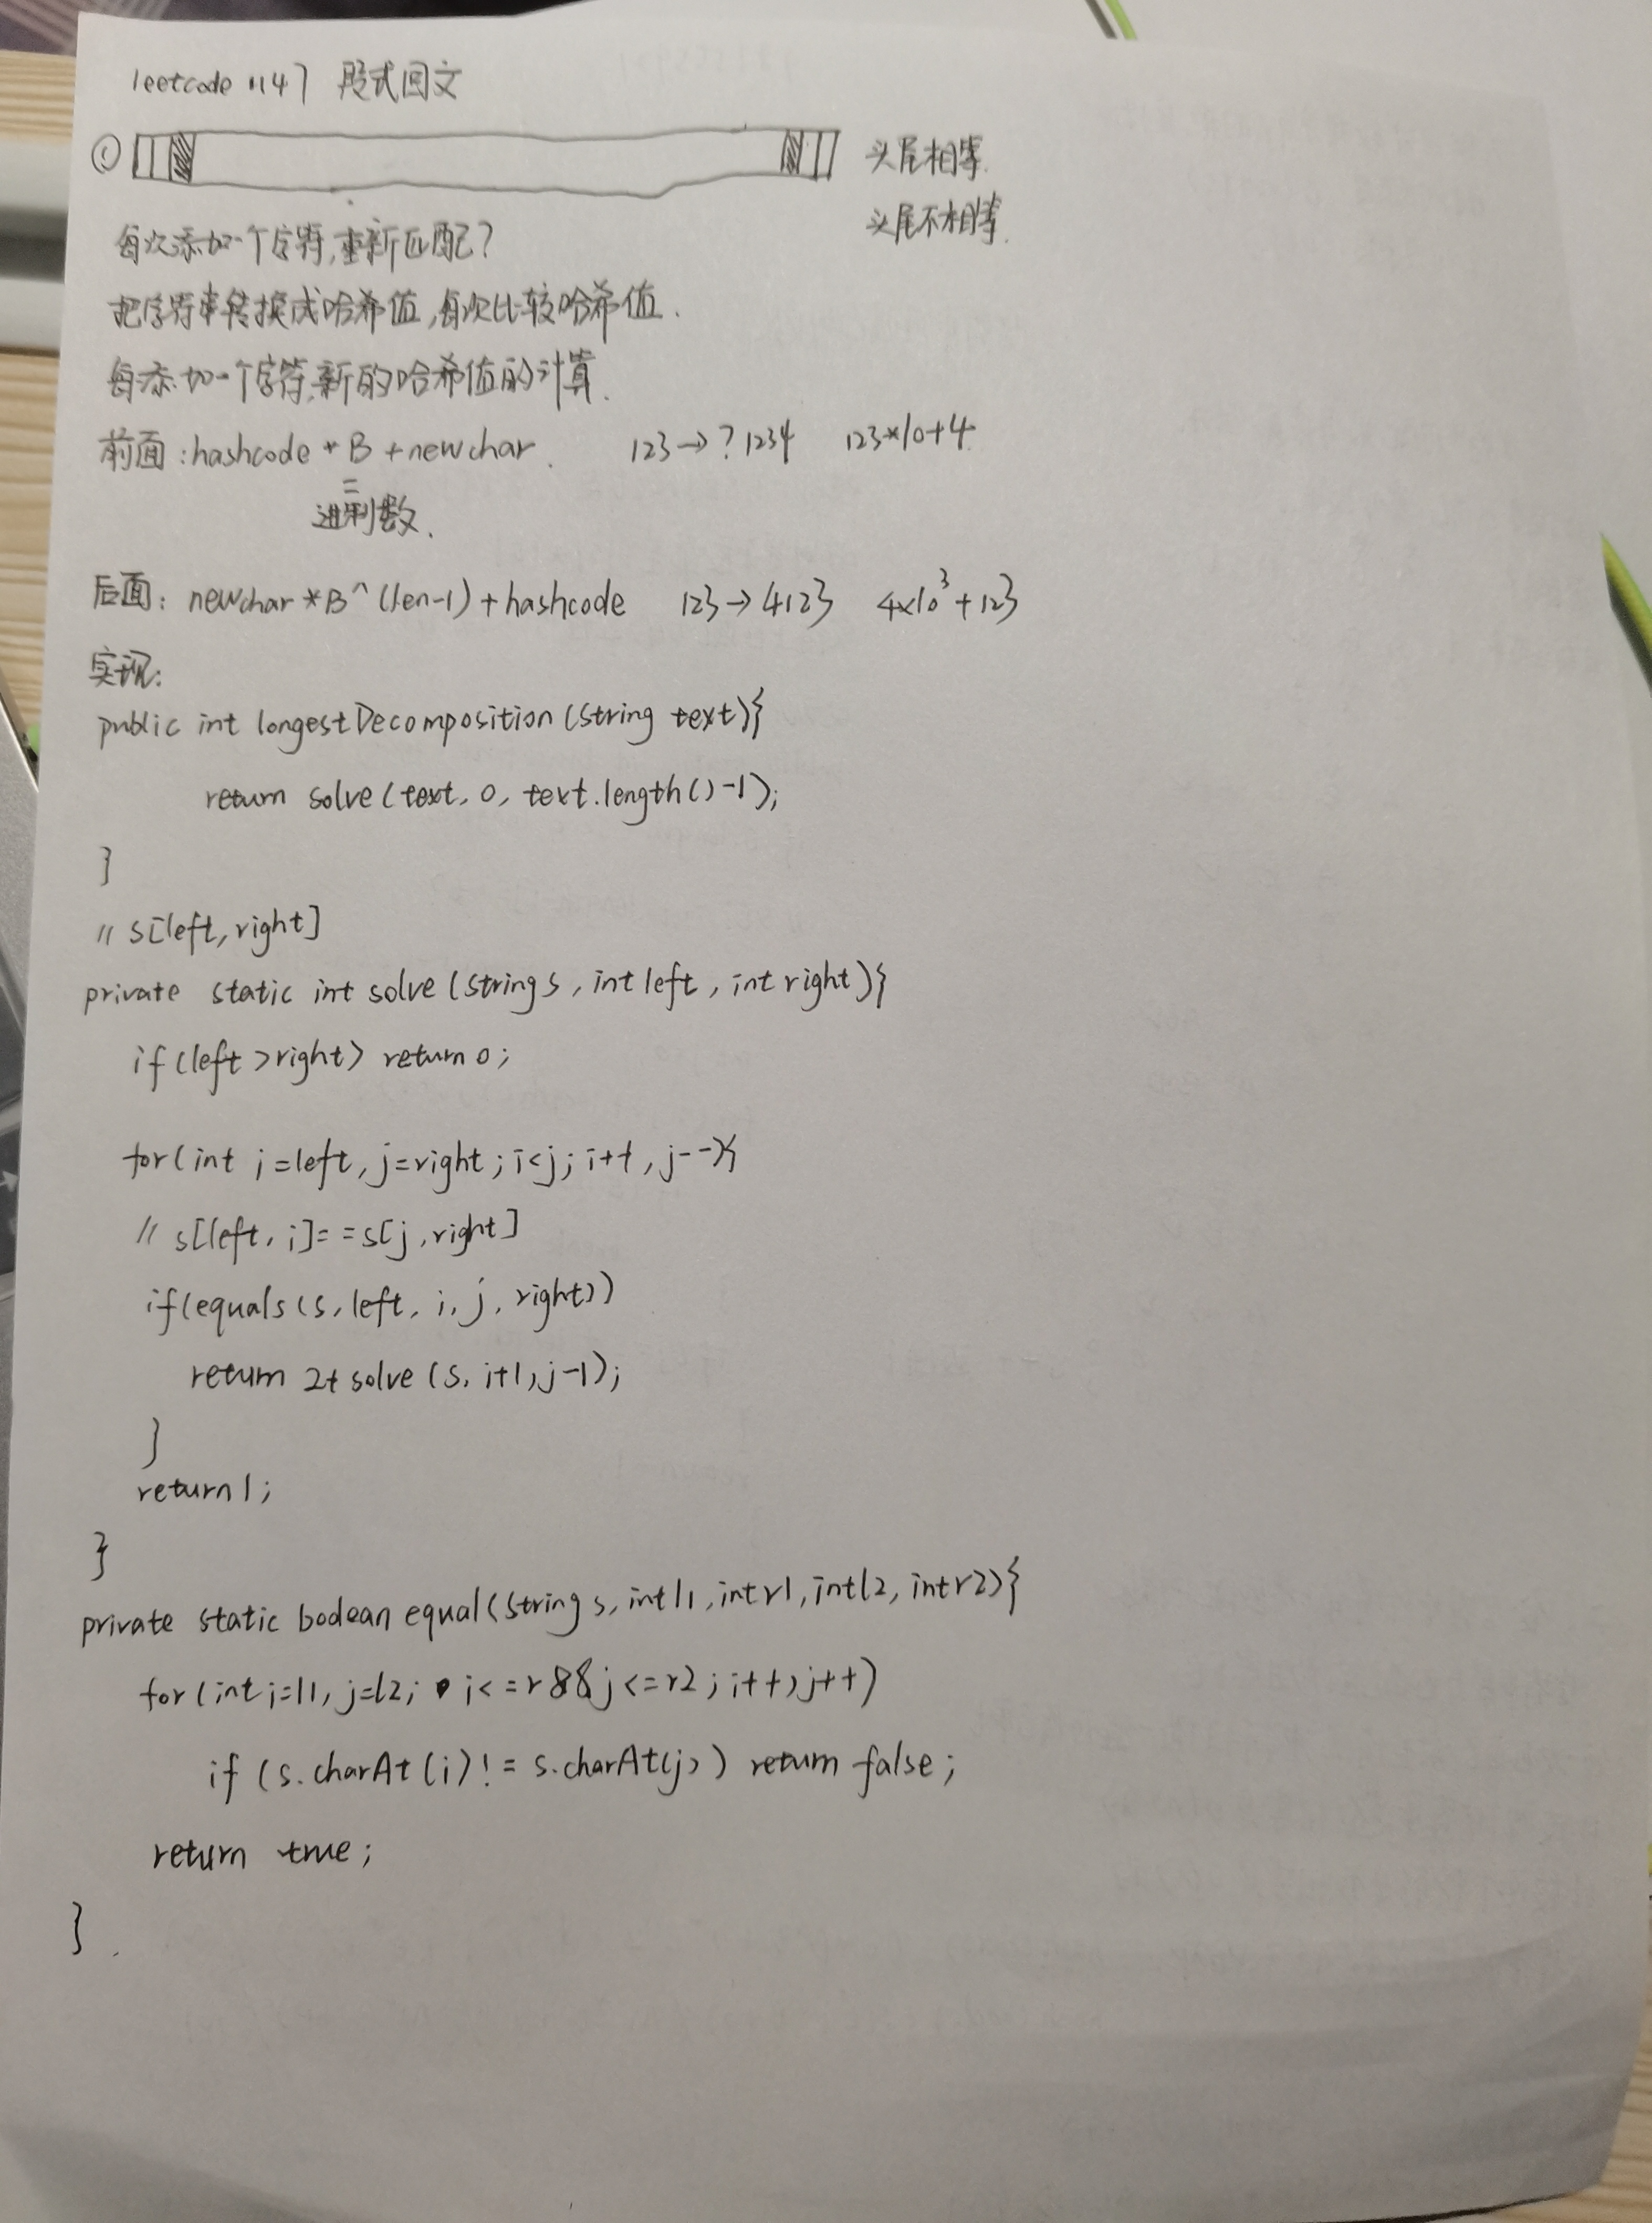 leetcode 1147 段式回文
① 头尾相等.
头尾不相等.
每次添加一个字符,重新匹配?
把字符串转换成哈希值,每次比较哈希值.
每添加一个字符,新的哈希值的计算.
前面:hashcode * B + newchar. 123→?1234 123*10+4
进制数.
后面: newchar *B^(len-1)+hashcode 123→4123 4×10³+123
实现:
public int longestDecomposition(String text){
return solve(text, 0, text.length()-1);
}
// s[left,right]
private static int solve(String s, int left, int right){
if(left>right) return 0;
for(int i=left, j=right; i<j; i++, j--){
// s[left, i]==s[j,right]
if(equals(s, left, i, j, right))
return 2+solve(s, i+1, j-1);
}
return 1;
}
private static boolean equal(String s, int l1, int r1, int l2, int r2){
for(int i=l1, j=l2; i<=r&&j<=r2; i++, j++)
if (s.charAt(i)!= s.charAt(j)) return false;
return true;
}